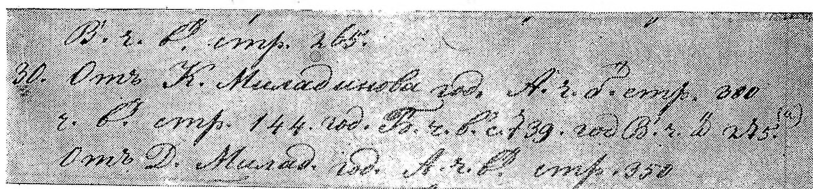 В. ч. вᵃ стр. 265.
30. Отъ К. Миладинова год. А. ч. бᵃ стр. 380
ч. вᵃ стр. 144. год. Б. ч. вᵃ с. 139. год В. ч. 275.(а)
Отъ Д. Милад. год. А. ч. вᵃ стр. 350